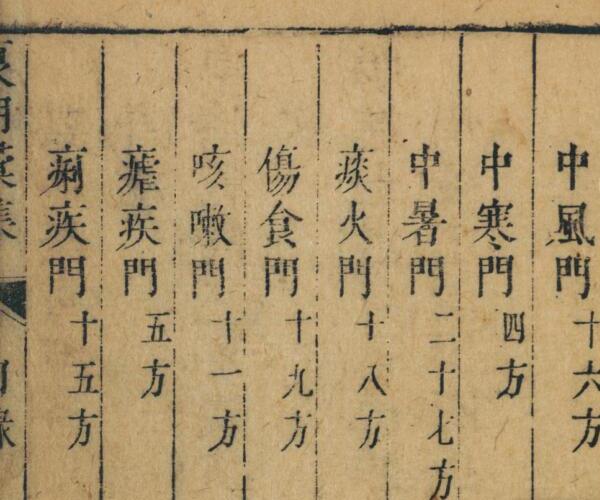 中風門十六方
中寒門四方
中暑門二十七方
痰火門十八方
傷食門十九方
咳嗽門十一方
瘧疾門五方
痢疾門十五方
良朋彙集 目錄